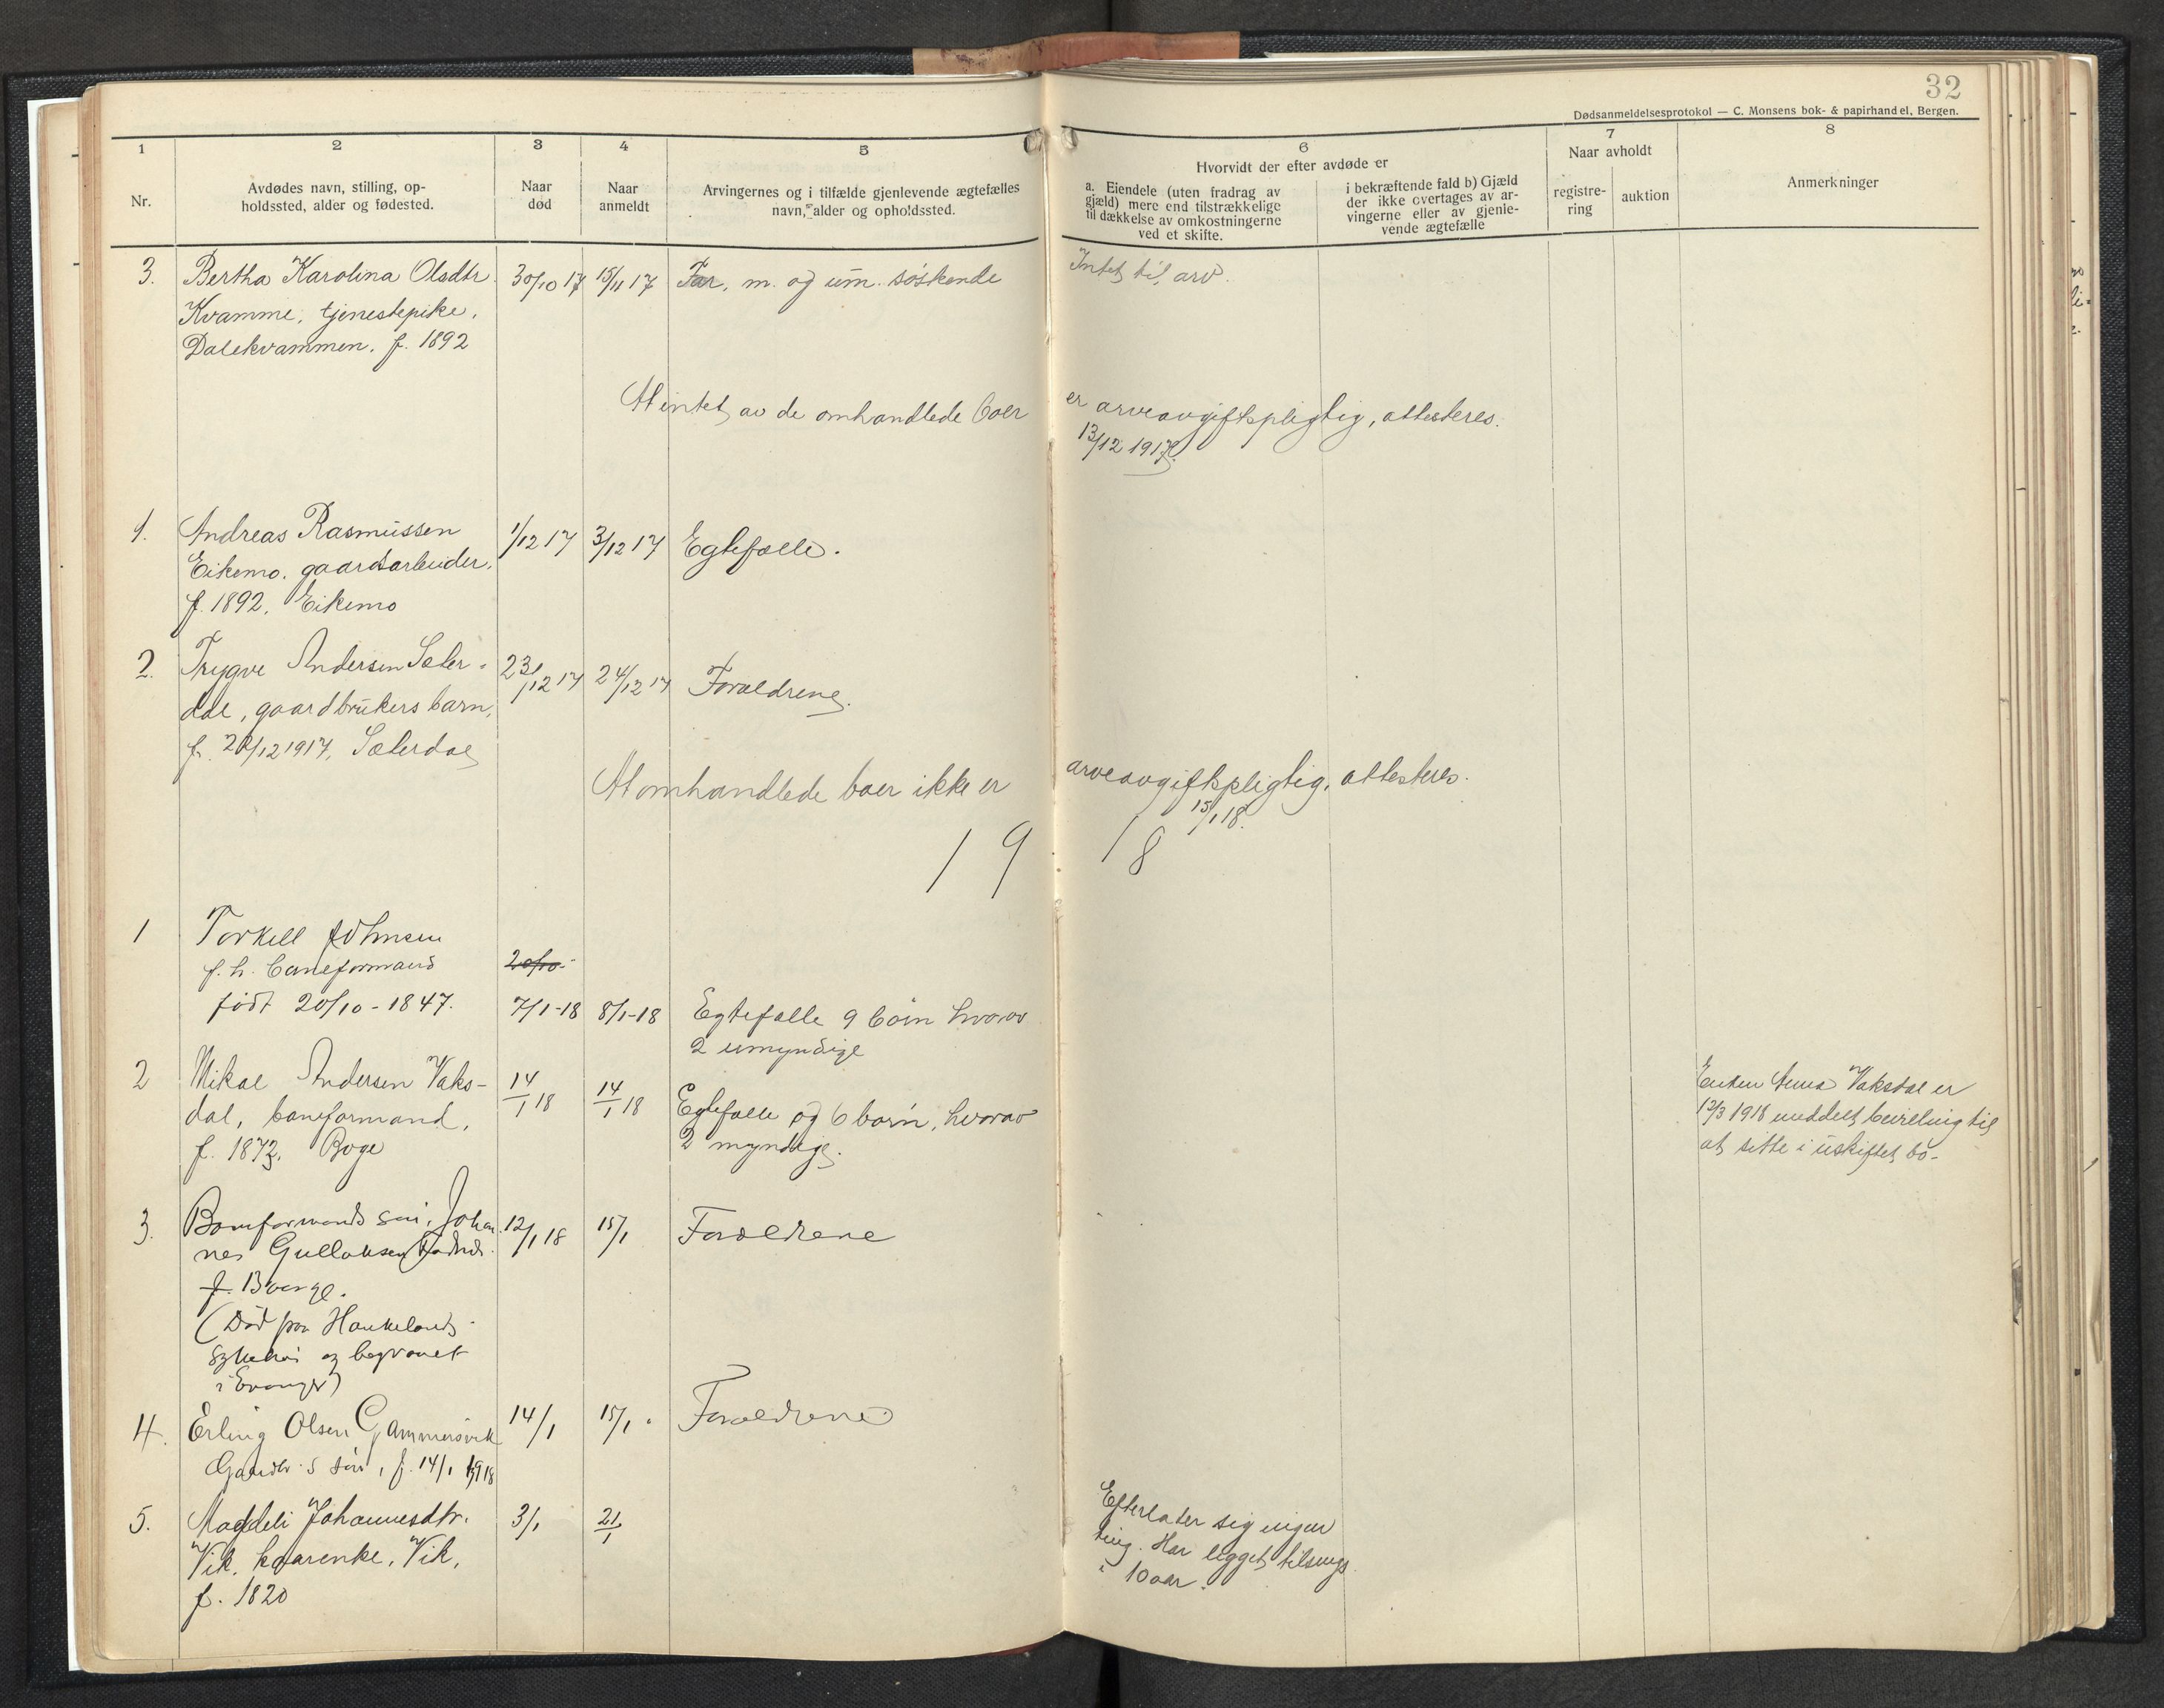 32
Dødsanmeldelsesprotokol — C. Monsens bok- & papirhandel, Bergen.
1
Nr.
2
Avdødes navn, stilling, op-
holdssted, alder og fødested.
3
Naar
død
4
Naar
anmeldt
5
Arvingernes og i tilfælde gjenlevende ægtefælles
navn, alder og opholdssted.
6
Hvorvidt der efter avdøde er
a. Eiendele (uten fradrag av
gjæld) mere end tilstrækkelige
til dækkelse av omkostningerne
ved et skifte.
i bekræftende fald b) Gjæld
der ikke overtages av ar-
vingerne eller av gjenle-
vende ægtefælle
7
Naar avholdt
registre-
ring
auktion
8
Anmerkninger
3. Bertha Karolina Olsdtr. 30/10 17 15/11 17 Far, m. og um. søskende Intet til arv.
Kvamme, tjenestepike,
Dalekvammen. f. 1892
At intet av de omhandlede boer er arveavgiftspligtig, attesteres.
13/12 1917.
1. Andreas Rasmussen 1/12 17 3/12 17 Egtefælle.
Eikemo. gaardsarbeider.
f. 1892. Eikemo
2. Trygve Andersen Sæter- 23/12 17 24/12 17 Forældrene.
dal, gaardbrukers barn,
f. 20/12 1917, Sæterdal
At omhandlede boer ikke er arveavgiftspligtig, attesteres.
15/1 18.
1 9 1 8
1 Torkell Johnsen
f. h. baneformand 20/10-
født 20/10-1847. 7/1-18 8/1-18 Egtefælle 9 børn hvorav
2 umyndige
2 Mikal Andersen Vaks- 14/1 18 14/1 18 Egtefælle og 6 børn, hvorav
dal, baneformand, 2 myndige.
f. 1873. Boge
Enken Anna Vaksdal er
12/3 1918 meddelt bevilling til
at sitte i uskiftet bo-
3. Baneformands søn, Johan- 12/1 18 15/1 Forældrene
nes Gullaksen
f. Bolge.
(Død paa Haukelands
sykehus og begravet
i Evanger)
4. Erling Olsen Gammersvik 14/1 15/1. Forældrene
Gaardbr. s søn, f. 14/1 1918
5. Magdeli Johannesdtr. 3/1 21/1
Vik, kaarenke, Vik,
f. 1820
Efterlater sig ingen
ting. Har ligget tilsengs
i 10 aar.